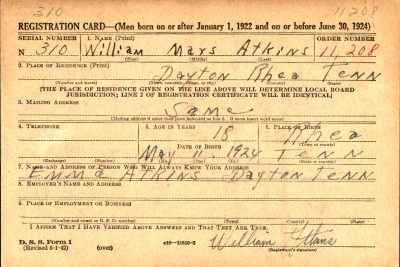 310 11208
REGISTRATION CARD—(Men born on or after January 1, 1922 and on or before June 30, 1924)
SERIAL NUMBER 1. NAME (Print) ORDER NUMBER
N 310 William Mays Atkins 11,208
(First) (Middle) (Last)
2. PLACE OF RESIDENCE (Print)
Dayton Rhea Tenn
(Number and street) (Town, township, village, or city) (County) (State)
[THE PLACE OF RESIDENCE GIVEN ON THE LINE ABOVE WILL DETERMINE LOCAL BOARD
JURISDICTION; LINE 2 OF REGISTRATION CERTIFICATE WILL BE IDENTICAL]
3. MAILING ADDRESS
Same
[Mailing address if other than place indicated on line 2. If same insert word same]
4. TELEPHONE 5. AGE IN YEARS 6. PLACE OF BIRTH
18 Rhea
DATE OF BIRTH
May 1924 Tenn
(Exchange) (Number) (Mo.) (Day) (Yr.) (State or country)
7. NAME AND ADDRESS OF PERSON WHO WILL ALWAYS KNOW YOUR ADDRESS
Emma Atkins Dayton Tenn
8. EMPLOYER'S NAME AND ADDRESS
9. PLACE OF EMPLOYMENT OR BUSINESS
(Number and street or R. F. D. number) (Town) (County) (State)
I AFFIRM THAT I HAVE VERIFIED ABOVE ANSWERS AND THAT THEY ARE TRUE.
D. S. S. Form 1
(Revised 6-1-42) (over) William
(Registrant's signature)